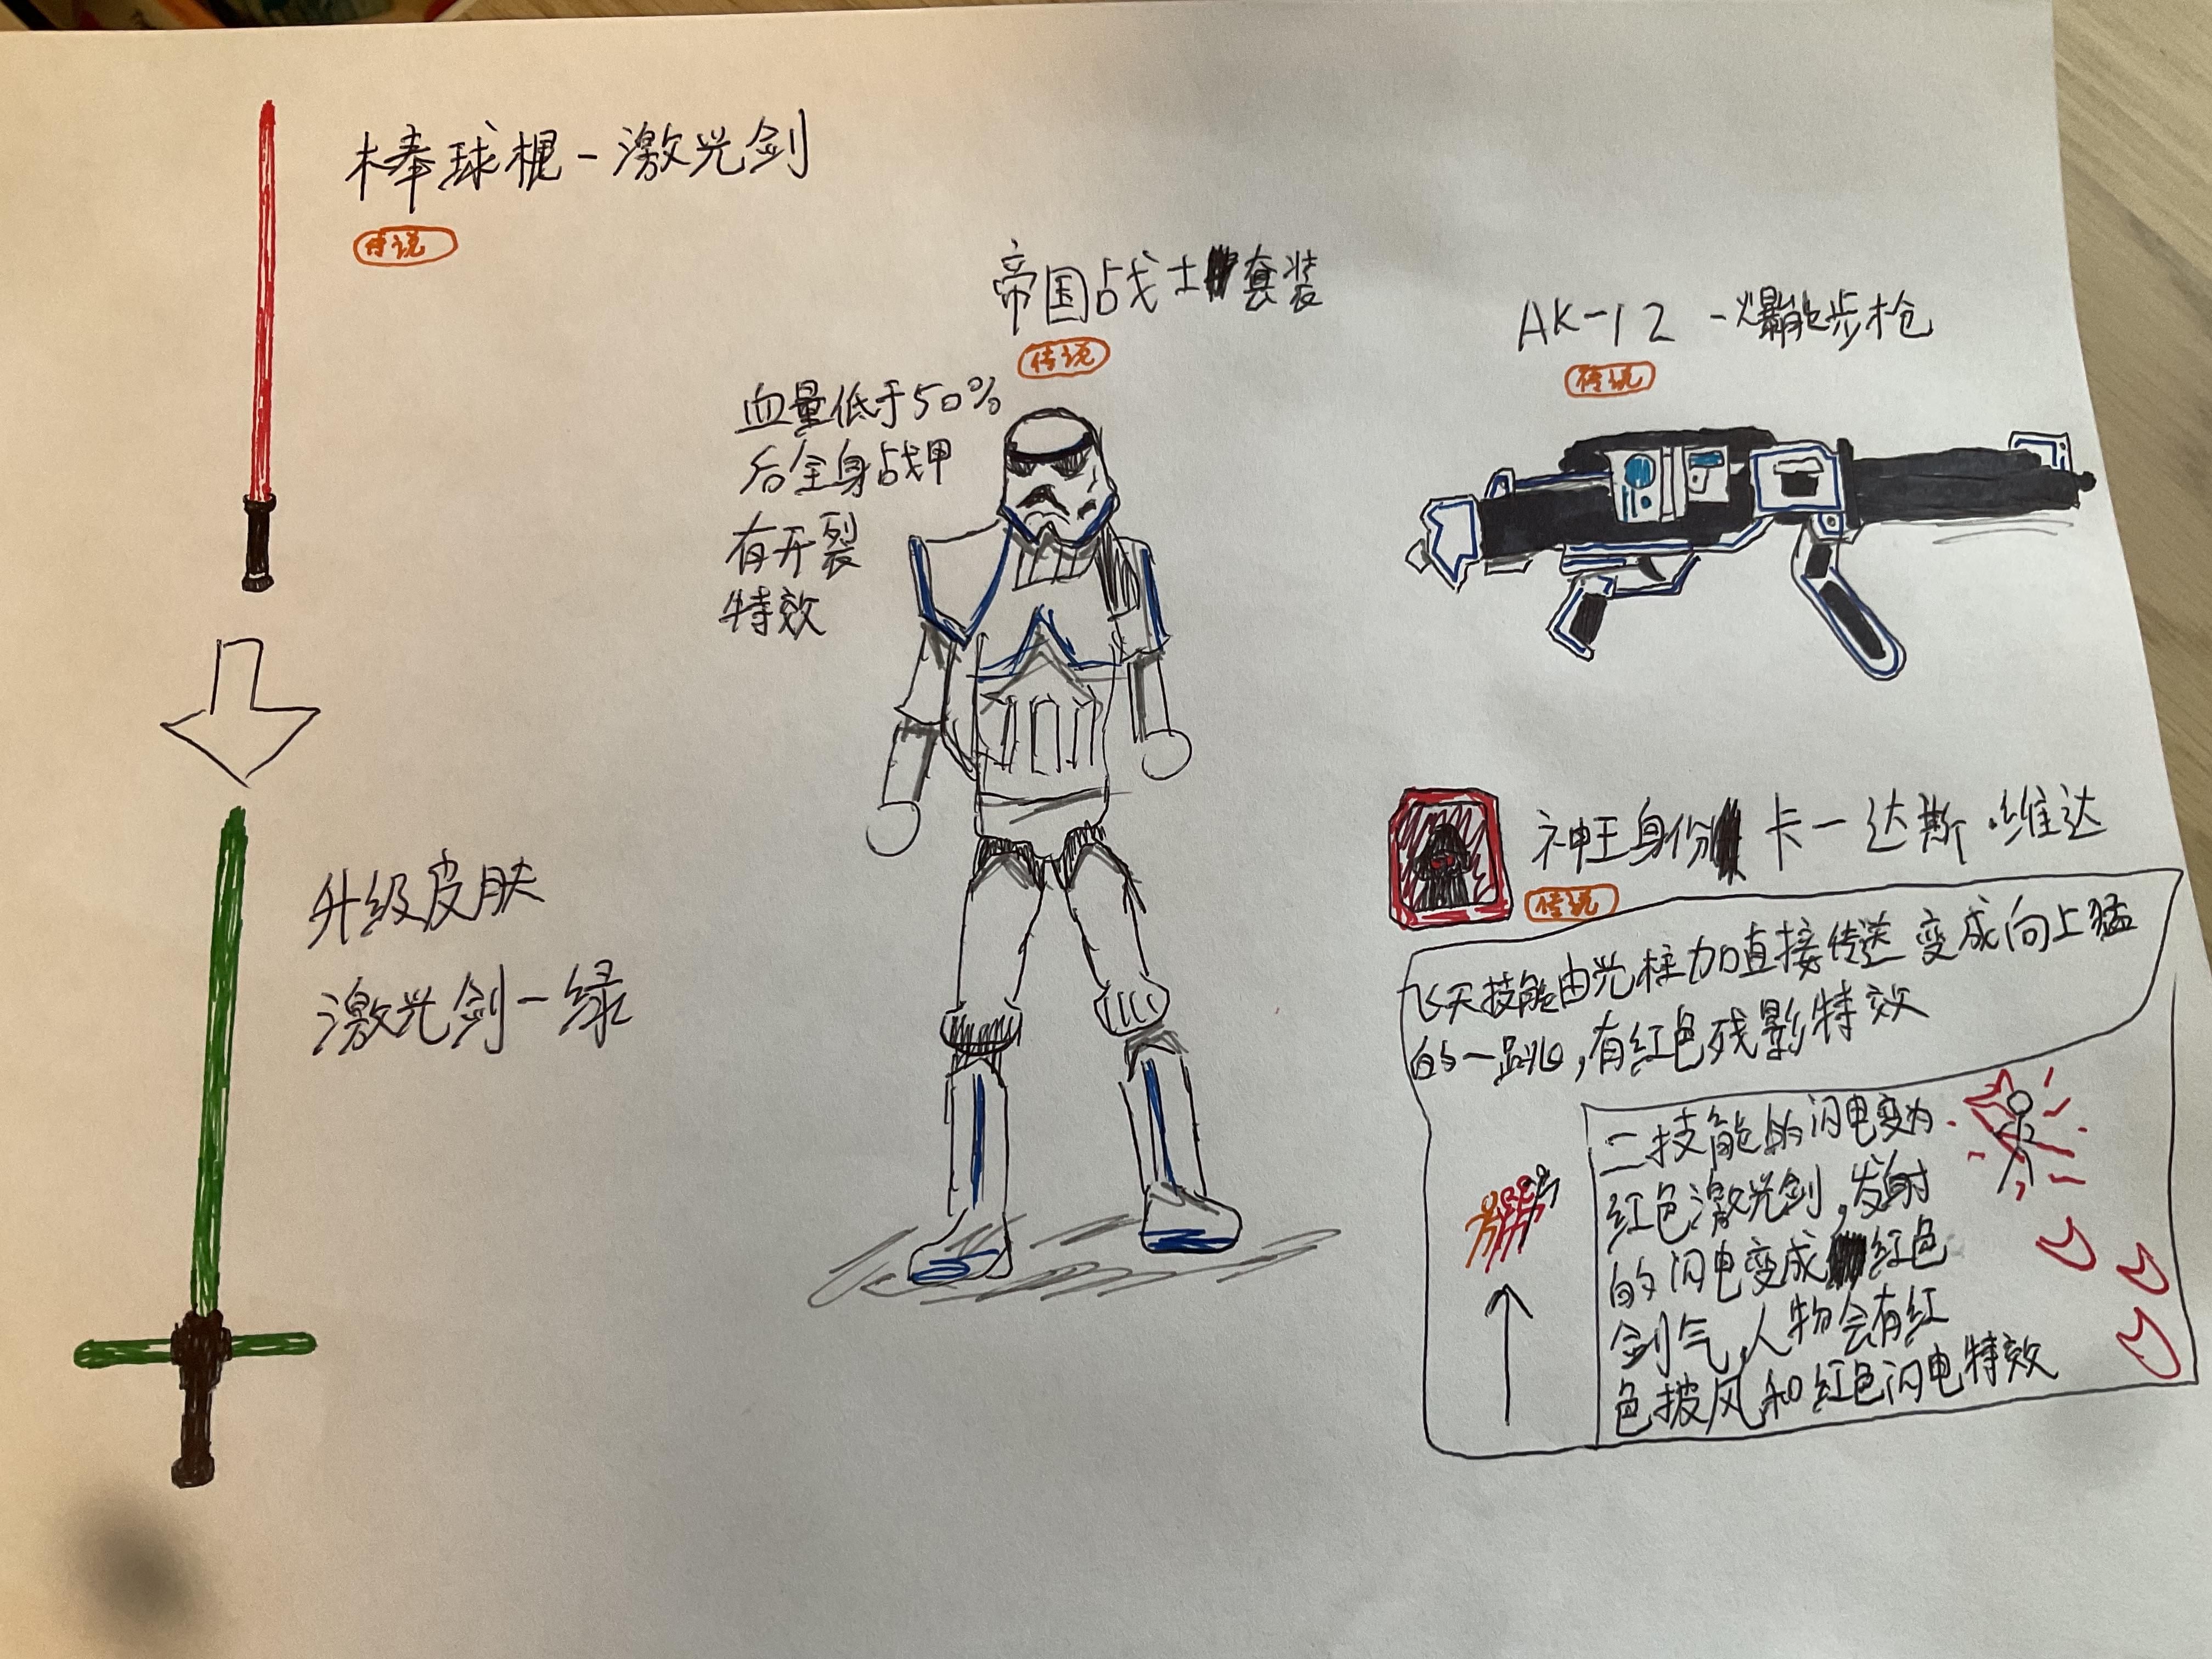 棒球棍-激光剑
传说
升级皮肤
激光剑-绿
帝国战士套装
传说
血量低于50%
后全身战甲
有开裂
特效
AK-12 -爆能步枪
传说
神王身份卡-达斯·维达
传说
飞天技能由光柱加直接传送变成向上猛
的一跳,有红色残影特效
二技能的闪电变为
红色激光剑,发射
的闪电变成红色
剑气,人物会有红
色披风和红色闪电特效